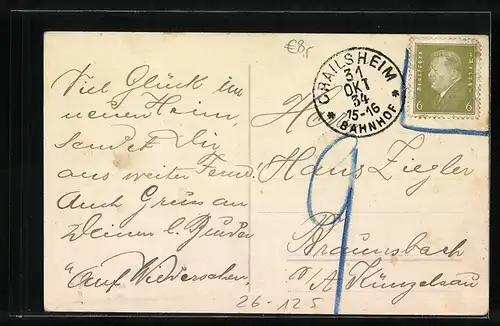 €8,-
Viel Glück im
neuen Heim,
sendet Dir
aus weiter Fernd!
Auch Gruss an
Deinen l. Bruder
"Auf Wiedersehen,
CRAILSHEIM
31
OKT
34
15-16
* BAHNHOF *
6 6
9
Hans Ziegler
Braunsbach
o/A Künzelsau
26-125